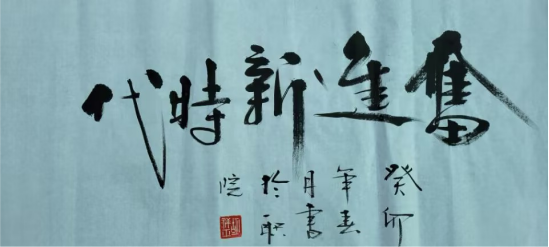 奮進新時代
癸卯
年春
月書
於联
院